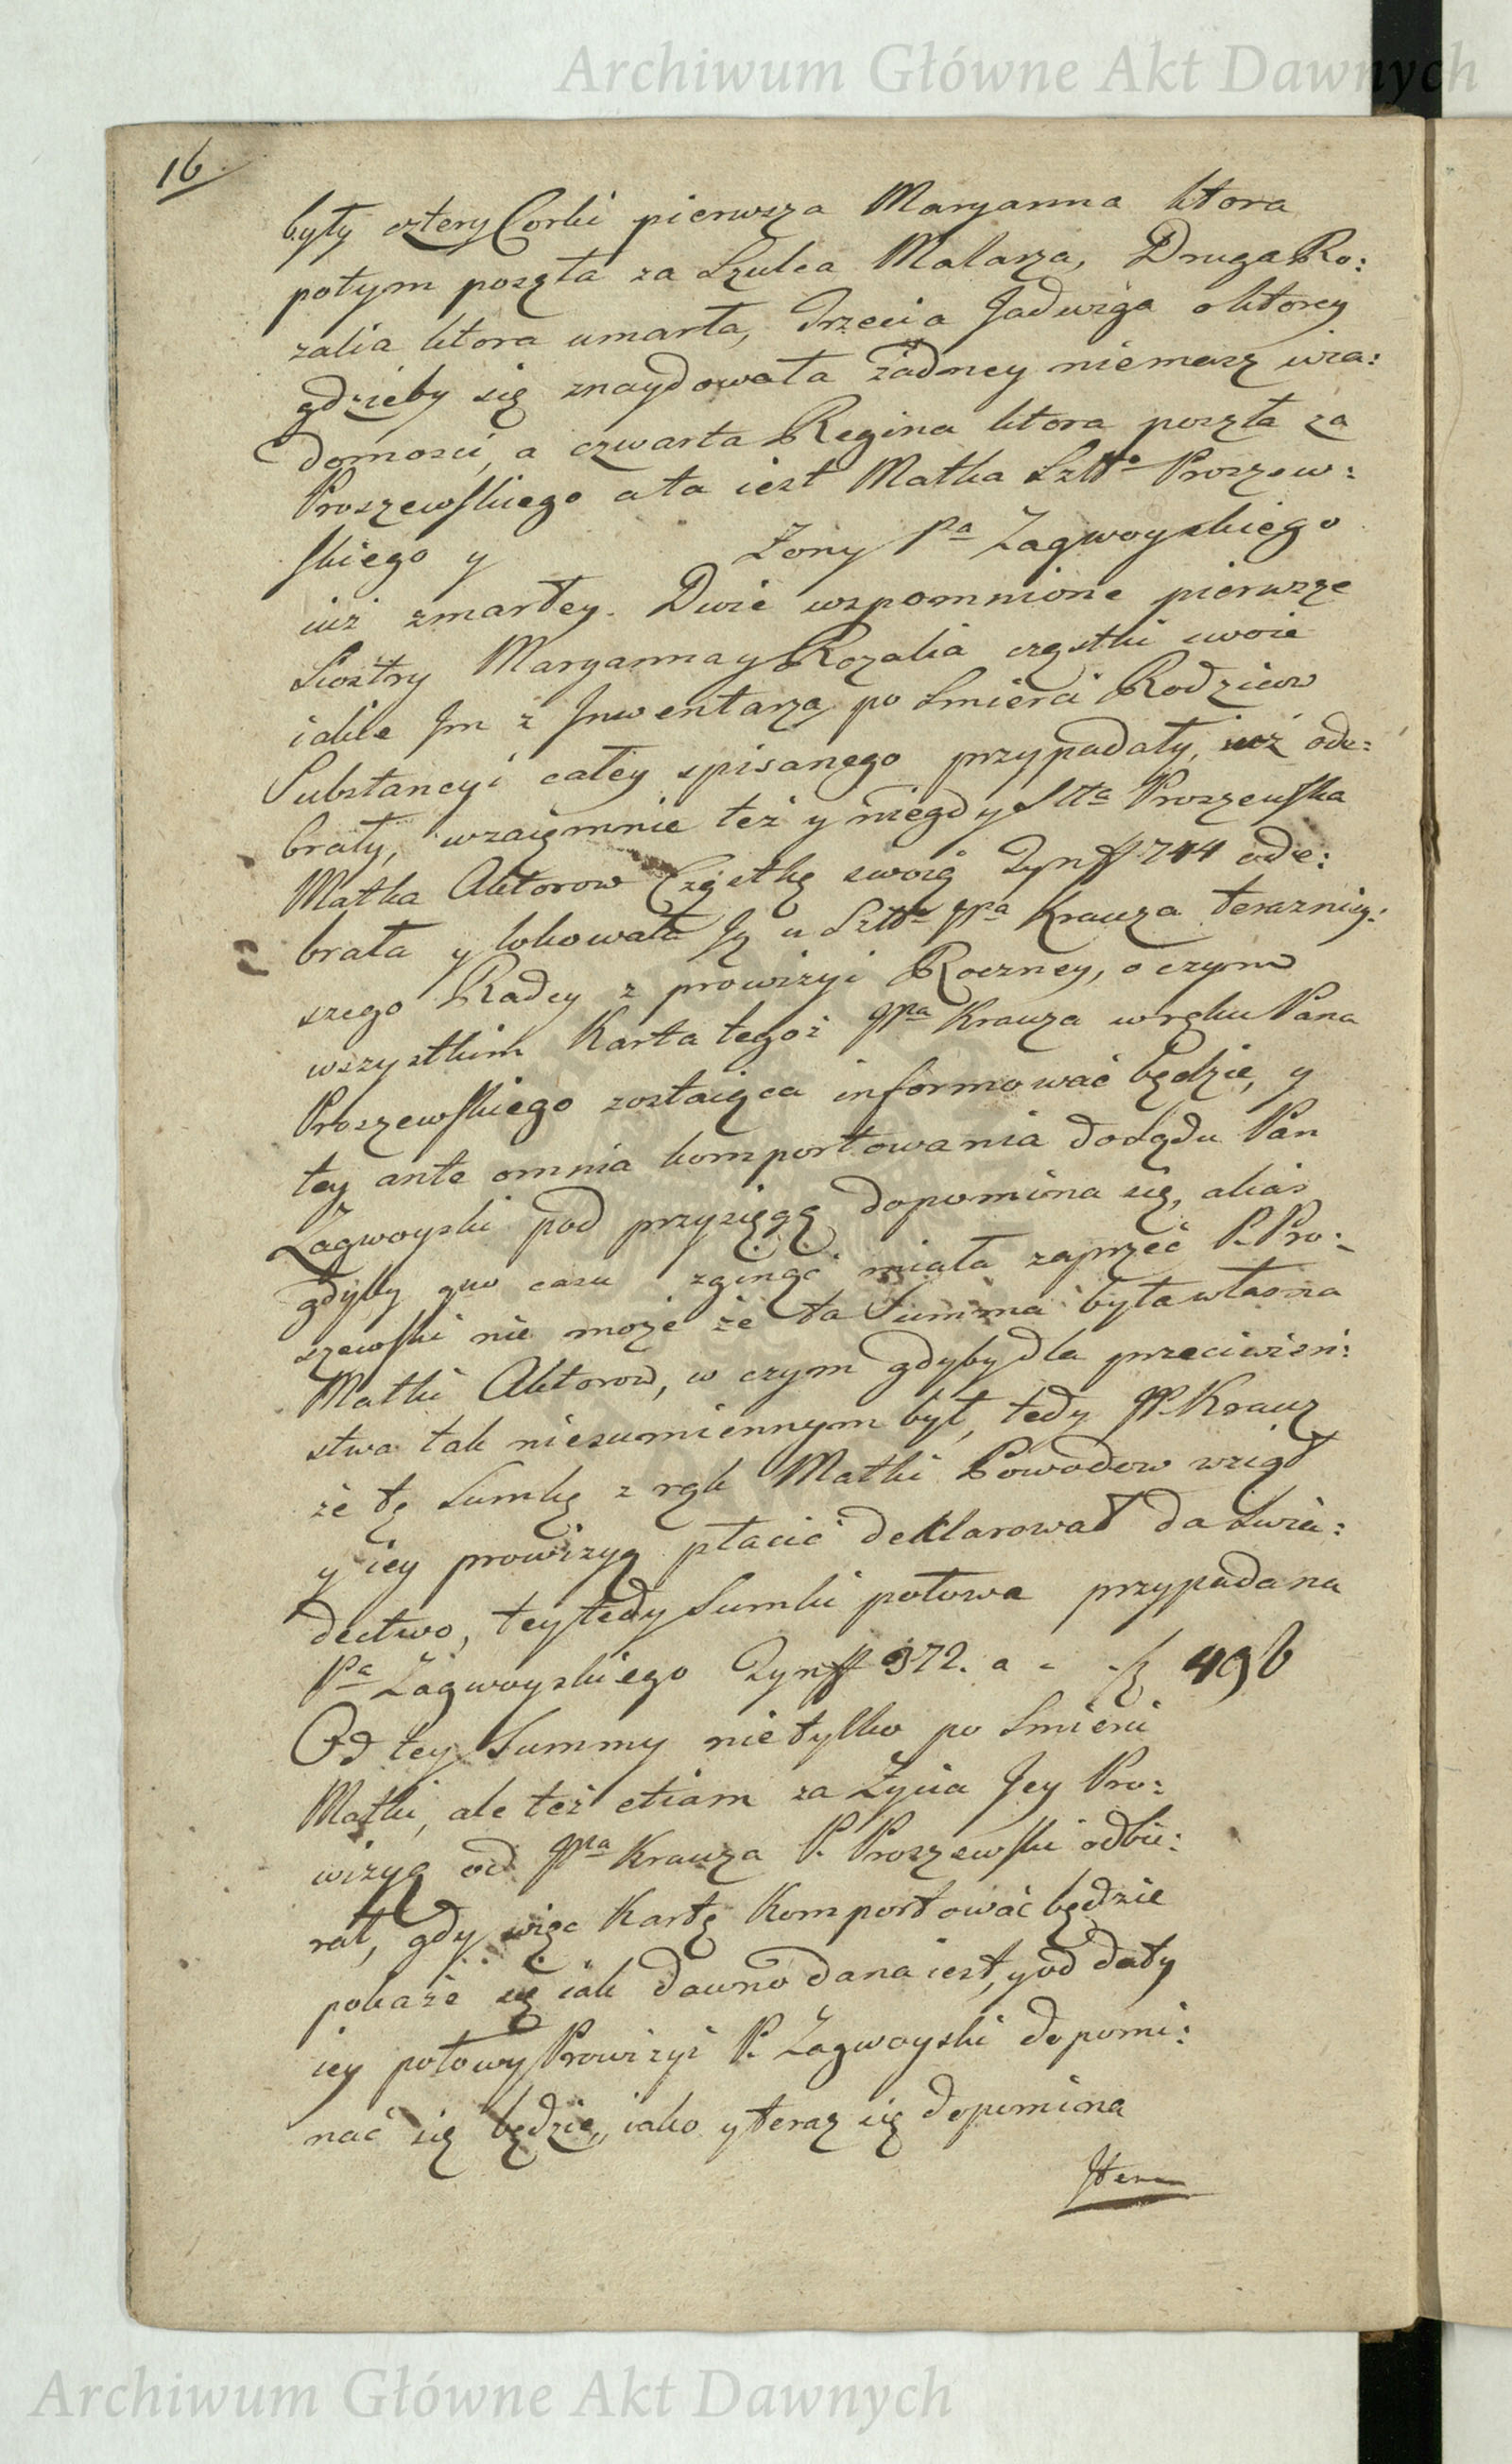 Archiwum Główne Akt Dawnych
16
były cztery Corki pierwsza Maryanna ktora
potym poszła za Szulca Malarza, Druga Ro:
zalia ktora umarła, Trzecia Jadwiga o ktorey
gdzieby się znaydowała żadney niemasz wia:
domosci, a czwarta Regina ktora poszła za
Proszewskiego a ta iest Matka Sztto Proszew:
skiego y Żony Pa Zagwoyskiego
iuż zmarłey. Dwie wspomnione pierwsze
Siostry Maryanna y Rozalia cząstki swoie
iakie Jm z Jnwentarza po Smierci Rodzicow
Substancyi całey spisanego przypadały, iuż ode:
brały, wzaiemnie też y niegdy Sltta Proszewska
Matka Aktorow Cząstkę swoią Tynff 744 ode:
brała y lokowała Ją u Sztto JPa Krauza terazniey:
szego Radcy z prowizyi Roczney, o czym
wszystkim Karta tegoż JPa Krauza w ręku Pana
Proszewskiego zostaiąca informować będzie, y
tey ante omnia komportowania do Sądu Pan
Zagwoyski pod przysięgą dopomina się, alias
gdyby quo casu zginąć miała zaprzeć P. Pro:
szewski nie może że ta Summa była własna
Matki Aktorow, w czym gdyby dla przeciwień:
stwa tak niesumiennym był, tedy JP. Krauz
że tę Sumkę z rąk Matki Powodow wziął
y iey prowizyą płacić deklarował da Swia:
dectwo, tey tedy Sumki połowa przypada na
Pa Zagwoyskiego Tynff 372. a - - f 496
Od tey Summy nie tylko po Smierci
Matki, ale też etiam za Życia Jey Pro:
wizyą od JPa Krauza P. Proszewski odbie:
rał, gdy więc Kartę Komportować będzie
pokaże się iak dawno dana iest, y od daty
iey połowy Prowizyi P. Zagwoyski dopomi:
nać się będzie, iako y teraz się dopomina
Item
Archiwum Główne Akt Dawnych